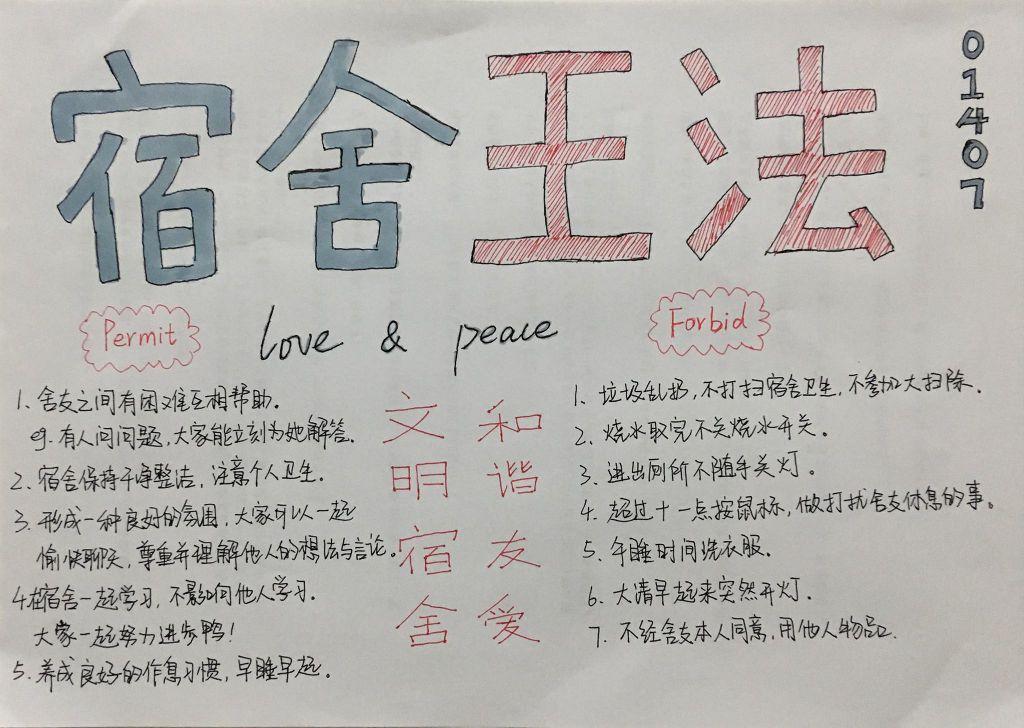 宿舍王法
01407
Permit
love & peace
Forbid
1. 舍友之间有困难互相帮助。
eg. 有人问问题,大家能立刻为她解答。
2. 宿舍保持干净整洁,注意个人卫生。
3. 形成一种良好的氛围,大家可以一起
愉快聊天,尊重并理解他人的想法与言论。
4. 在宿舍一起学习,不影响他人学习.
大家一起努力进步鸭!
5. 养成良好的作息习惯,早睡早起.
文 和
明 谐
宿 友
舍 爱
1. 垃圾乱扔,不打扫宿舍卫生,不参加大扫除.
2. 烧水取完不关烧水开关。
3. 进出厕所不随手关灯。
4. 超过十一点按鼠标,做打扰舍友休息的事。
5. 午睡时间洗衣服.
6. 大清早起来突然开灯.
7. 不经舍友本人同意,用他人物品.